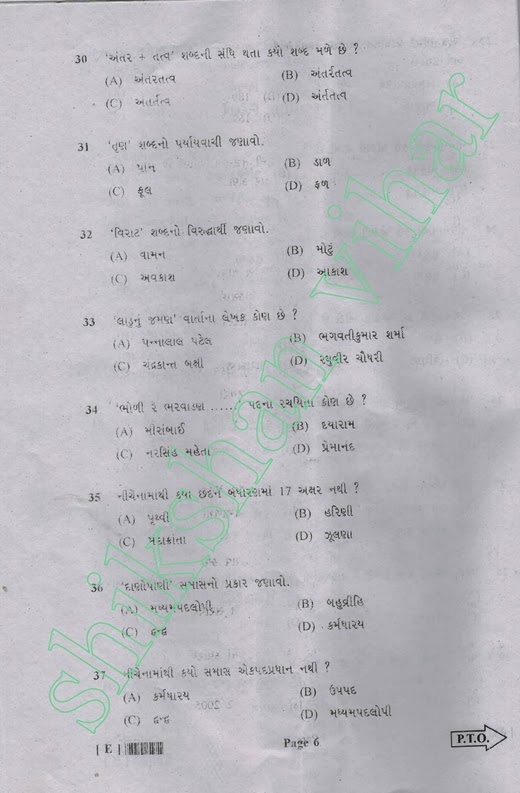 30 'અંતર + તત્વ' શબ્દની સંધિ થતા કયો શબ્દ મળે છે ?
(A) અંતરતત્વ (B) અંતર્રતત્વ
(C) અતર્તત્વ (D) અંર્તતત્વ
31 'તૃણ' શબ્દનો પર્યાયવાચી જણાવો.
(A) પાન (B) ડાળ
(C) ફૂલ (D) ફળ
32 'વિરાટ' શબ્દનો વિરુદ્ધાર્થી જણાવો.
(A) વામન (B) મોટું
(C) અવકાશ (D) આકાશ
33 'લાડુનું જમણ' વાર્તાના લેખક કોણ છે ?
(A) પન્નાલાલ પટેલ (B) ભગવતીકુમાર શર્મા
(C) ચંદ્રકાન્ત બક્ષી (D) રઘુવીર ચૌધરી
34 'ભોળી રે ભરવાડણ ...... પદના રચયિતા કોણ છે ?
(A) મીરાંબાઈ (B) દયારામ
(C) નરસિંહ મહેતા (D) પ્રેમાનંદ
35 નીચેનામાંથી કયા છંદના બંધારણમાં 17 અક્ષર નથી ?
(A) પૃથ્વી (B) હરિણી
(C) મંદાક્રાંતા (D) ઝૂલણા
36 'દાણોપાણી' સમાસનો પ્રકાર જણાવો.
(A) મધ્યમપદલોપી (B) બહુવ્રીહિ
(C) દ્વન્દ્વ (D) કર્મધારય
37 નીચેનામાંથી કયો સમાસ એકપદપ્રધાન નથી ?
(A) કર્મધારય (B) ઉપપદ
(C) દ્વન્દ્વ (D) મધ્યમપદલોપી
[ E ] Page 6 P.T.O.
shikshan vihar